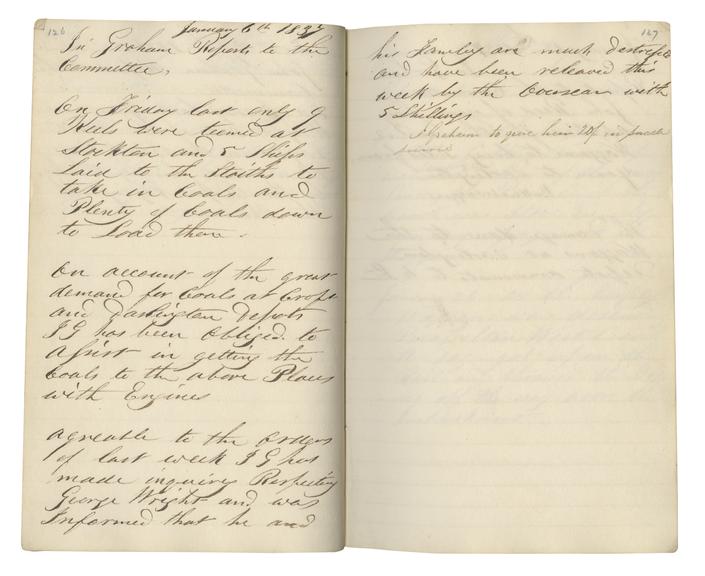 126
January 6th 1832
Jn Graham Reports to the
Committee,
On Friday last only 9
Keels were teemed at
Stockton and 5 Ships
Laid to the Staiths to
take in Coals and
Plenty of Coals down
to Load them.
On account of the great
demand for Coals at Croft
and Darlington Depots
JG has been Obliged to
assist in getting the
Coals to the above Places
with Engines
agreable to the Orders
of last week JG has
made inquiry Respecting
George Wright and was
Informed that he and
127
his Familey are much destress
and have been releaved this
week by the with
5 Shillings
J Graham to give him 20/ in